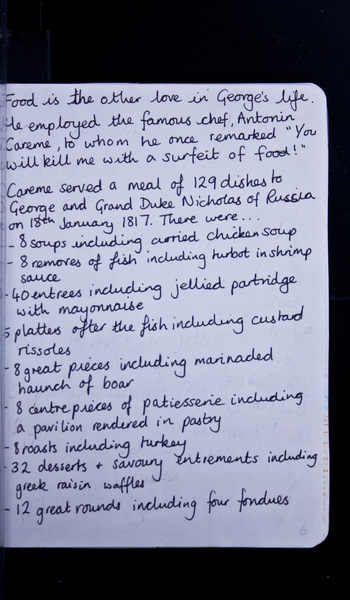 Food is the other love in George's life.
He employed the famous chef, Antonin
Careme, to whom he once remarked "You
will kill me with a surfeit of food!"
Careme served a meal of 129 dishes to
George and Grand Duke Nicholas of Russia
on 18th January 1817. There were...
- 8 soups including curried chicken soup
- 8 removes of fish including turbot in shrimp
sauce
- 40 entrees including jellied partridge
with mayonnaise
5 platters after the fish including custard
rissoles
- 8 great pieces including marinaded
haunch of boar
- 8 centre pieces of patiesserie including
a pavilion rendered in pastry
- 8 roasts including turkey
- 32 desserts + savoury entrements including
greek raisin waffles
- 12 great rounds including four fondues
6